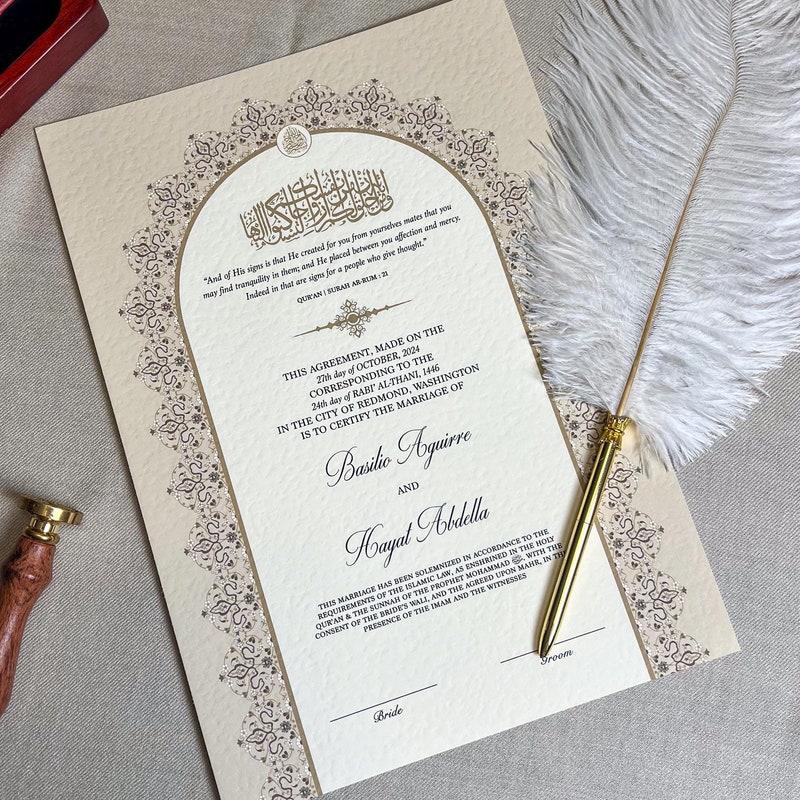 ومن آياته أن خلق لكم من أنفسكم أزواجا لتسكنوا إليها
“And of His signs is that He created for you from yourselves mates that you
may find tranquility in them; and He placed between you affection and mercy.
Indeed in that are signs for a people who give thought.”
QUR'AN | SURAH AR-RUM : 21
THIS AGREEMENT, MADE ON THE
27th day of OCTOBER, 2024
CORRESPONDING TO THE
24th day of RABI' AL-THANI, 1446
IN THE CITY OF REDMOND, WASHINGTON
IS TO CERTIFY THE MARRIAGE OF
Basilio Aguirre
AND
Hayat Abdella
THIS MARRIAGE HAS BEEN SOLEMNIZED IN ACCORDANCE TO THE
REQUIREMENTS OF THE ISLAMIC LAW, AS ENSHRINED IN THE HOLY
QUR'AN & THE SUNNAH OF THE PROPHET MOHAMMAD ﷺ, WITH THE
CONSENT OF THE BRIDE'S WALI, AND THE AGREED UPON MAHR, IN THE
PRESENCE OF THE IMAM AND THE WITNESSES
Groom
Bride